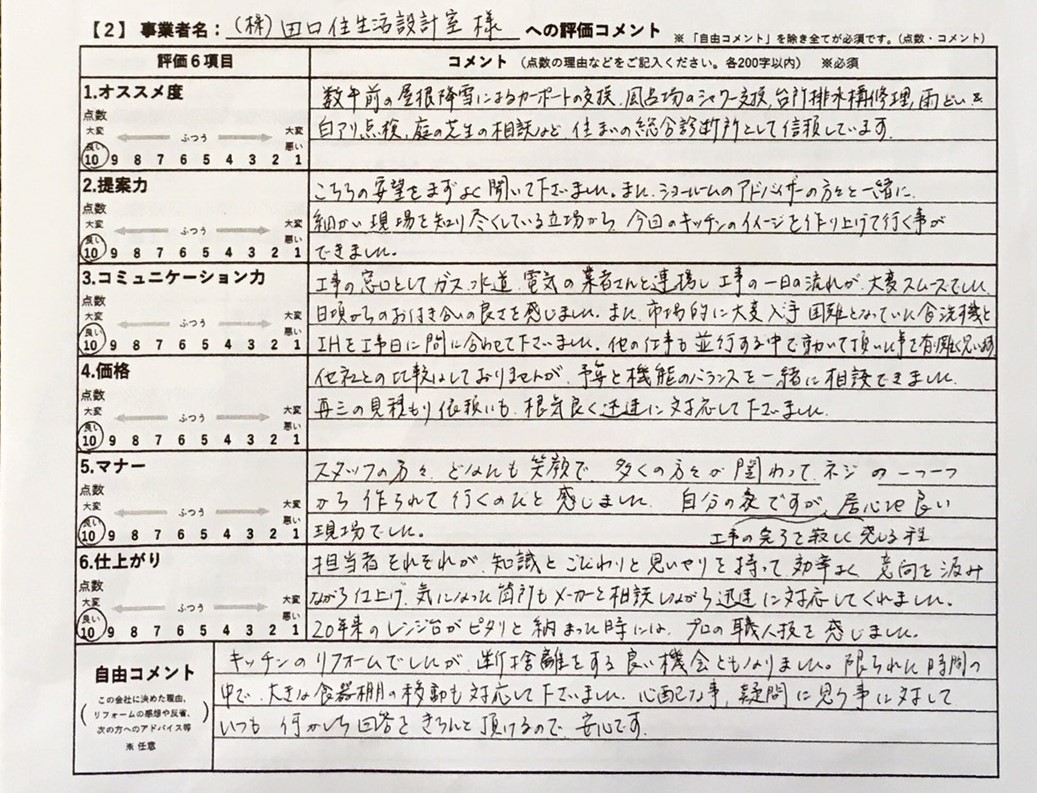 【2】事業者名：(株)田口住生活設計室 様 への評価コメント ※「自由コメント」を除き全てが必須です。(点数・コメント)
評価６項目 コメント （点数の理由などをご記入ください。各200字以内） ※必須
1.オススメ度
点数
大変良い ふつう 大変悪い
10 9 8 7 6 5 4 3 2 1
数年前の屋根降雪によるカーポートの交換、風呂場のシャワー交換、台所排水構修理、雨どい&
白アリ点検、庭の芝生の相談など、住まいの総合診断所として信頼しています。
2.提案力
点数
大変良い ふつう 大変悪い
10 9 8 7 6 5 4 3 2 1
こちらの要望をまずよく聞いて下さいました。また、ショールームのアドバイザーの方々と一緒に、
細かい現場を知り尽くしている立場から、今回のキッチンのイメージを作り上げて行く事が
できました。
3.コミュニケーション力
点数
大変良い ふつう 大変悪い
10 9 8 7 6 5 4 3 2 1
工事の窓口としてガス、水道、電気の業者さんと連携し工事の一日の流れが、大変スムーズでした。
日頃からのお付き合いの良さを感じました。また、市場的に大変入手困難となっていた食洗機と
IHを工事日に間に合わせて下さいました。他の仕事も並行する中で動いて頂いた事を有り難く思います
4.価格
点数
大変良い ふつう 大変悪い
10 9 8 7 6 5 4 3 2 1
他社との比較はしておりませんが、予算と機能のバランスを一緒に相談できました。
再三の見積もり依頼にも、根気良く迅速に対応して下さいました。
5.マナー
点数
大変良い ふつう 大変悪い
10 9 8 7 6 5 4 3 2 1
スタッフの方々、どなたも笑顔で、多くの方々が関わって、ネジの一つ一つ
から作られて行くのだと感じました。自分の家ですが、居心地良い
現場でした。 工事の完了を寂しく感じる程
6.仕上がり
点数
大変良い ふつう 大変悪い
10 9 8 7 6 5 4 3 2 1
担当者それぞれが、知識とこだわりと思いやりを持って効率よく、意向を汲み
ながら仕上げ、気になった箇所もメーカーと相談しながら迅速に対応してくれました。
20年来のレンジ台がピタリと納まった時には、プロの職人技を感じました。
自由コメント
（この会社に決めた理由、
リフォームの感想や反省、
次の方へのアドバイス等）
※ 任意
キッチンのリフォームでしたが、断捨離をする良い機会ともなりました。限られた時間の
中で、大きな食器棚の移動も対応して下さいました。心配な事、疑問に思う事に対して
いつも何かしら回答をきちんと頂けるので、安心です。